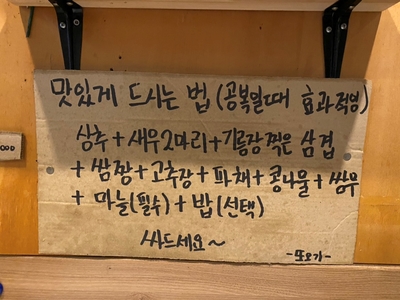 맛있게 드시는 법 (공복일때 효과적영)
상추 + 새우2마리 + 기름장 찍은 삼겹
+ 쌈장 + 고추장 + 파채 + 콩나물 + 쌈무
+ 마늘(필수) + 밥(선택)
싸드세요~
-또오가-
000